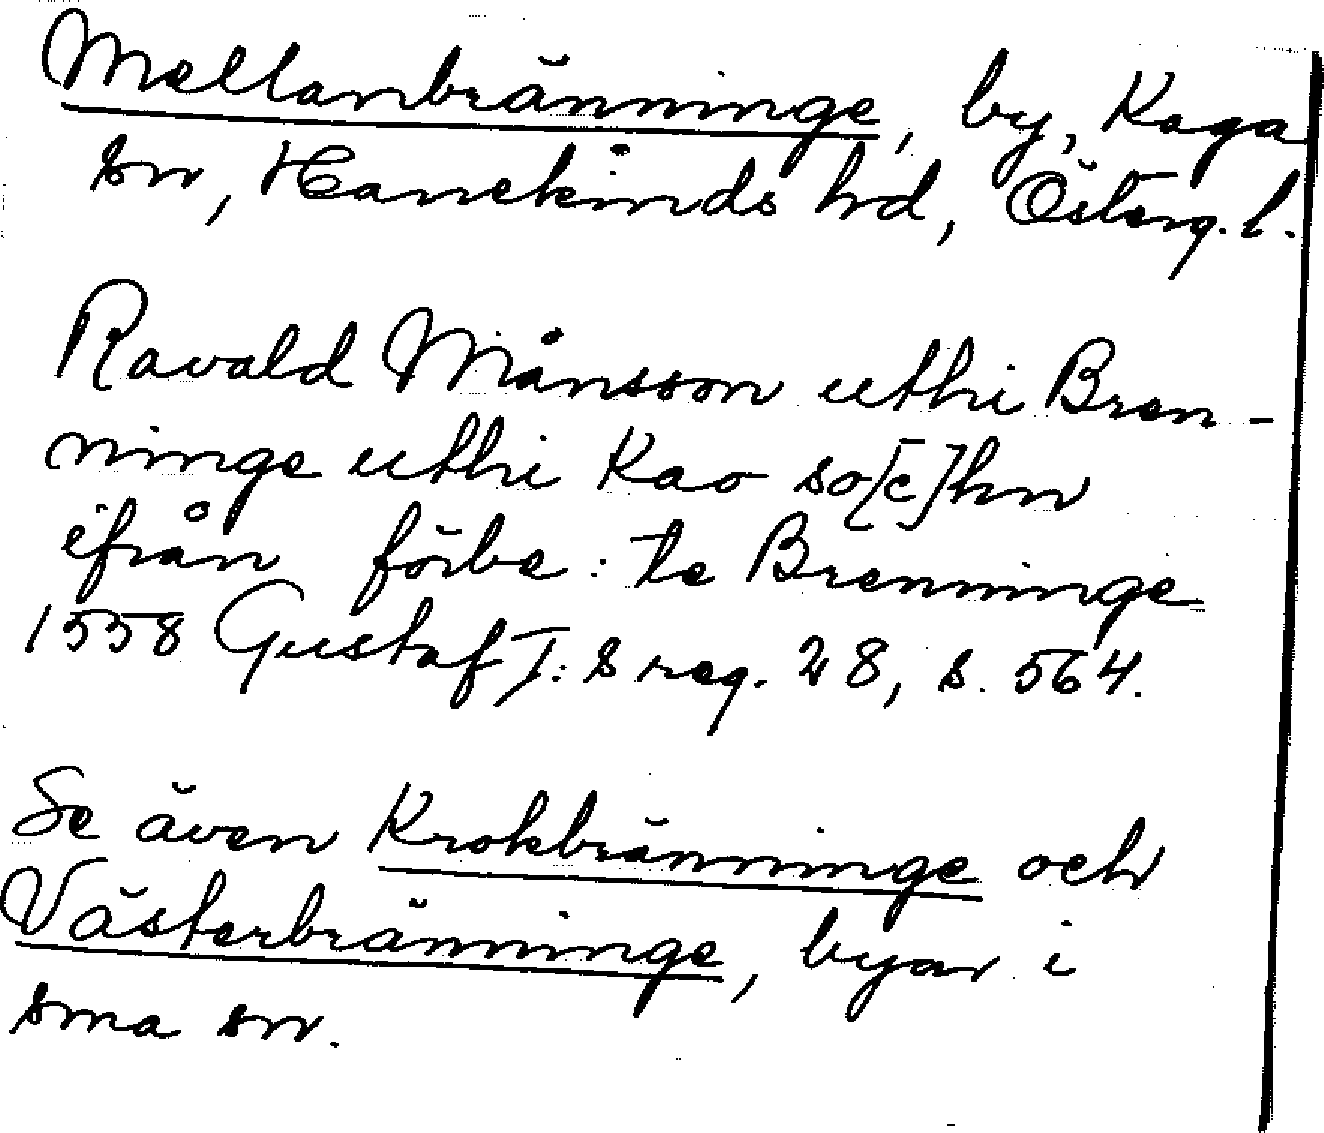 Mellanbränninge, by, Kaga
sn, Hanekinds hd, Österg. l.
Ravald Månsson uthi Bren-
ninge uthi Kao so[c]hn
ifrån förbe: te Brenninge
1558 Gustaf I: s reg. 28, s. 564.
Se även Krokbränninge och
Västerbränninge, byar i
sma sn.